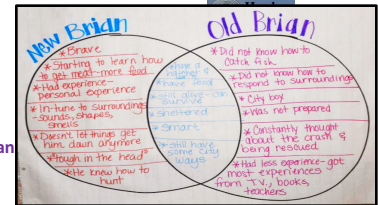 New Brian
Old Brian
* Brave
* Starting to learn how
to get meat-more food
* Had experience-
personal experience
* In-tune to surroundings
-sounds, shapes,
smells
* Doesn't let things get
him down anymore
* "tough in the head"
* He knew how to
hunt
* Have a
hatchet
* have food
* still alive-can
survive
* sheltered
* smart
* still have
some city
ways
* Did not know how to
catch fish
* Did not know how to
respond to surroundings
* City boy
* Was not prepared
* Constantly thought
about the crash &
being rescued
* Had less experience-got
most experiences
from T.V., books,
teachers
an